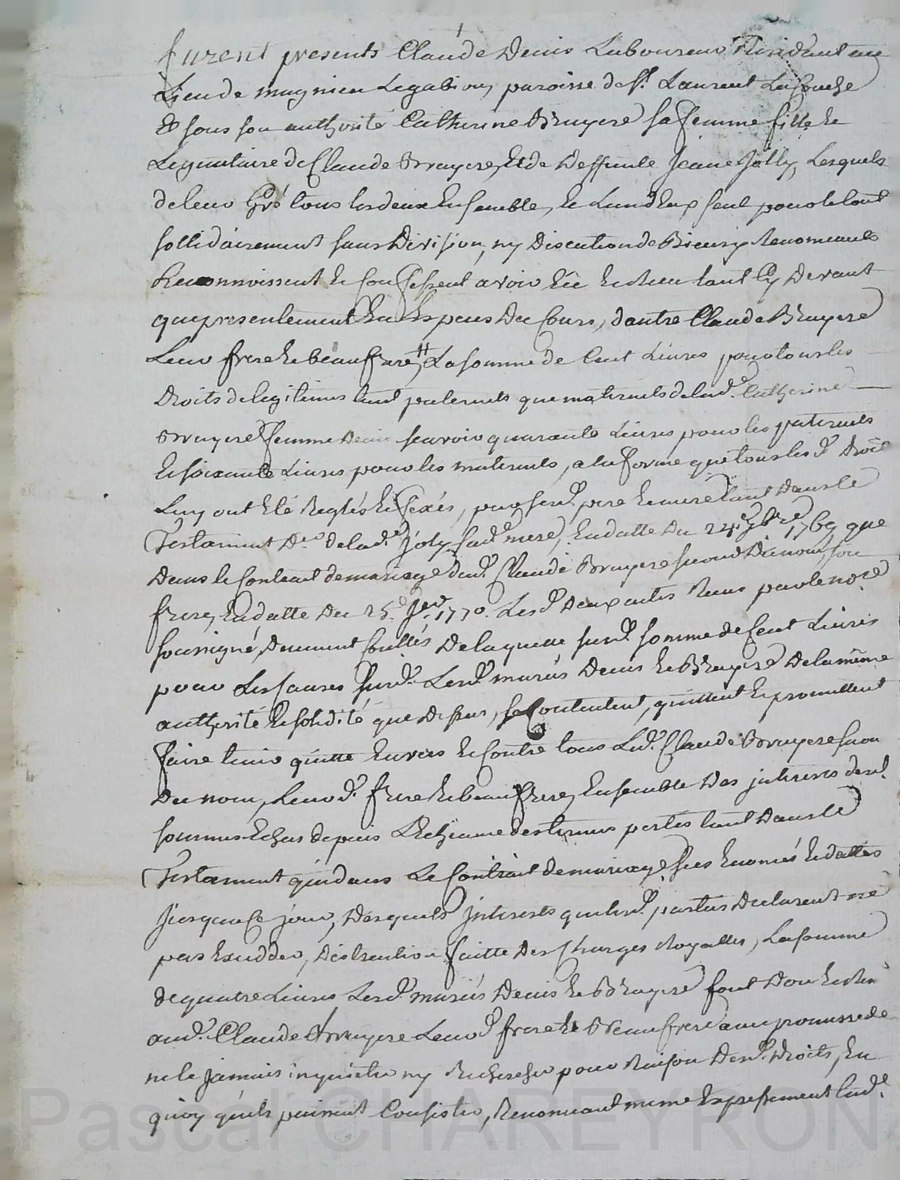 furent presents Claude Denis Laboureur Residant au
Lieu de magnieu Legabion, paroisse de St. Laurent La Conche
Et sous son authorité Catherine Bruyere sa femme fille Et
Legataire de Claude Bruyere, Et de Deffunte Jeane Jolly, Lesquels
de leur Gré tous les deux Ensemble, Et Lun deux seul pour le tout
sollidairement sans Division, ny Discution de Biens, y Renonceants
Reconnoissent Et Confessent avoir Eté Et cheu tant Cy Devant
que presentement En Especes Du Cours, d'autre Claude Bruyere
Leur frere Et beau frere, La somme de Cent Livres pour tous les
Droits de legitimes tant paternels que maternels de lad.e Catherine
Bruyere femme Denis scavoir quarante Livres pour les paternels
Et soixante Livres pour les maternels, a la forme que tous lesd. Droits
Luy ont Eté Reglés Et fixés, par sesd. pere Et mere tant Dans le
Testament De lad.e Joly sad.e mere, En datte Du 24.e 9bre 1769 que
Dans le Contrat de mariage dud. Claude Bruyere second Du nom, son
frere, En datte Du 25.e Jer. 1770. Lesd. Deux actes Reçus par le nore
soussigné, Deument Collés De laquelle susd. somme de Cent Livres
pour Les causes susd. Lesd. mariés Denis Et Bruyere De la même
authorité Et solidité que Dessus, se Contentent, quittent Et promettent
faire tenir quitte Envers Et Contre tous Led. Claude Bruyere second
Du nom, Leurd. frere Et beau frere, Ensemble Des interets desd.
sommes Echus depuis L'Echeance des termes portés tant Dans le
Testament que dans Le Contrat de mariage sus Enoncés Et dattés
Jusqu'a Ce jour, Desquels interets que lesd. parties Declarent ne
pas Exceder, Distraction faitte Des Charges Royalles, La somme
de quatre Livres Lesd. mariés Denis Et Bruyere font Don Et
aud. Claude Bruyere Leurd. frere Et Beau frere avec promesse de
ne le jamais inquieter ny Rechercher pour Raison Desd. Droits, En
quoy qu'ils puissent Consister, Renonceant meme Expressement Lad.e
Pascal CHAREYRON